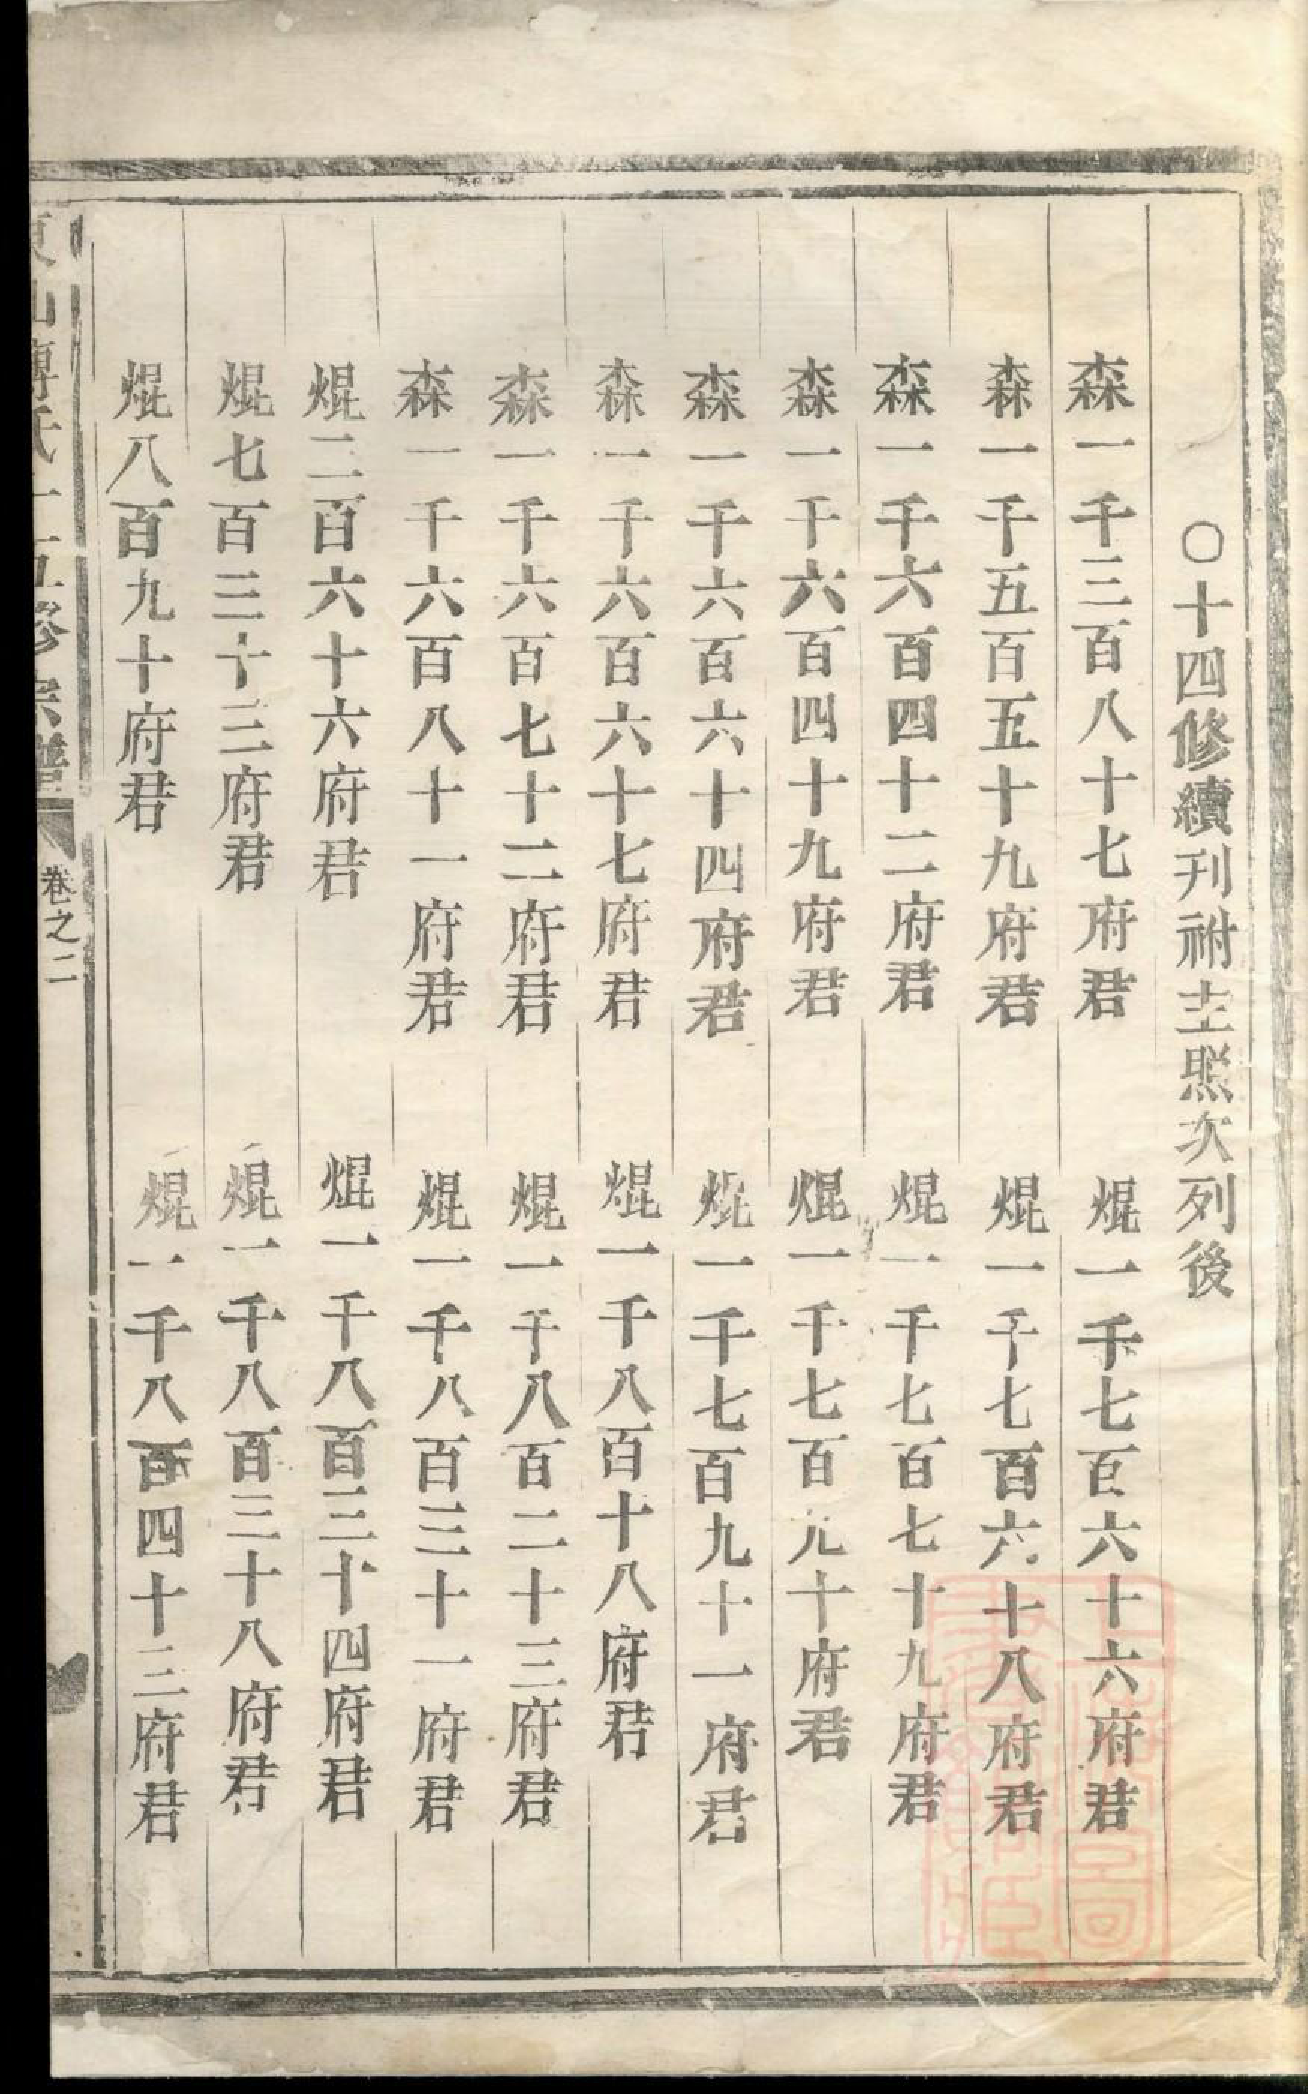 ○十四修續刊祔主照次列後
森一千三百八十七府君
焜一千七百六十六府君
森一千五百五十九府君
焜一千七百六十八府君
森一千六百四十二府君
焜一千七百七十九府君
森一千六百四十九府君
焜一千七百九十府君
森一千六百六十四府君
焜一千七百九十一府君
森一千六百六十七府君
焜一千八百十八府君
森一千六百七十二府君
焜一千八百二十三府君
森一千六百八十一府君
焜一千八百三十一府君
焜二百六十六府君
焜一千八百三十四府君
焜七百三十三府君
焜一千八百三十八府君
焜八百九十府君
焜一千八百四十三府君
東山傅氏十五修宗譜
卷之二